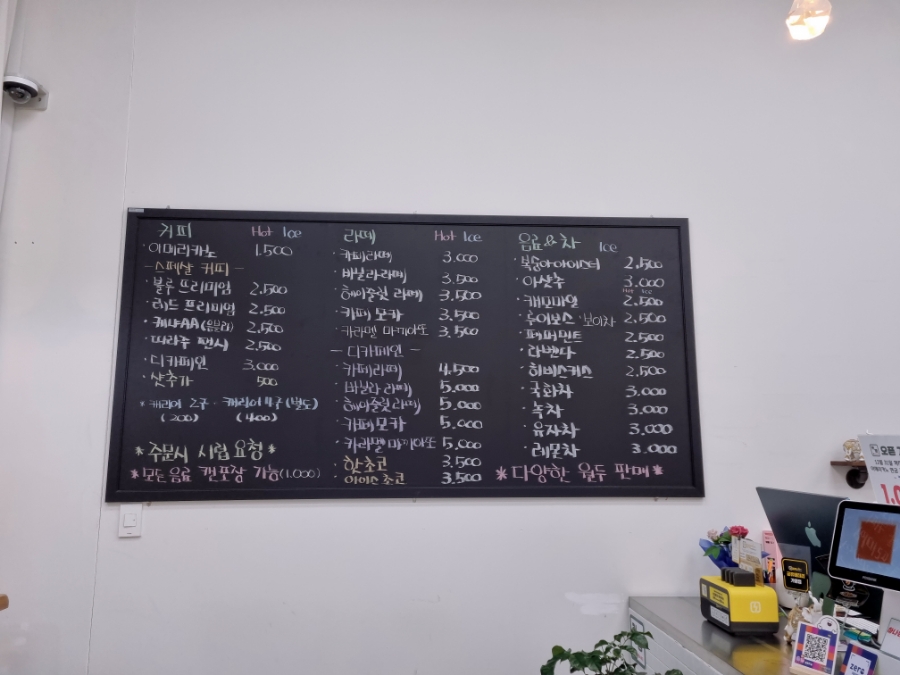 커피 Hot Ice
· 아메리카노 1.500
- 스페샬 커피 -
· 블루 프리미엄 2.500
· 레드 프리미엄 2.500
· 케냐AA 2.500
· 따라주 팬시 2.500
· 디카페인 3.000
· 샷추가 500
* 캐리어 2구 · 캐리어 4구 (별도)
(200) (400)
* 주문시 시럽 요청 *
* 모든 음료 캔포장 가능 (1.000)
라떼 Hot Ice
· 카페라떼 3.000
· 바닐라라떼 3.500
· 헤이즐넛 라떼 3.500
· 카페 모카 3.500
· 카라멜 마끼아또 3.500
- 디카페인 -
· 카페라떼 4.500
· 바닐라 라떼 5.000
· 헤이즐넛 라떼 5.000
· 카페 모카 5.000
· 카라멜 마끼아또 5.000
· 핫초코 3.500
· 아이스 초코 3.500
음료 & 차 Ice
· 복숭아아이스티 2.500
· 아샷추 3.000
Hot Ice
· 캐모마일 2.500
· 루이보스 · 보이차 2.500
· 페퍼민트 2.500
· 라벤다 2.500
· 히비스커스 2.500
· 국화차 3.000
· 녹차 3.000
· 유자차 3.000
· 레몬차 3.000
* 다양한 원두 판매 *
오픈
zero